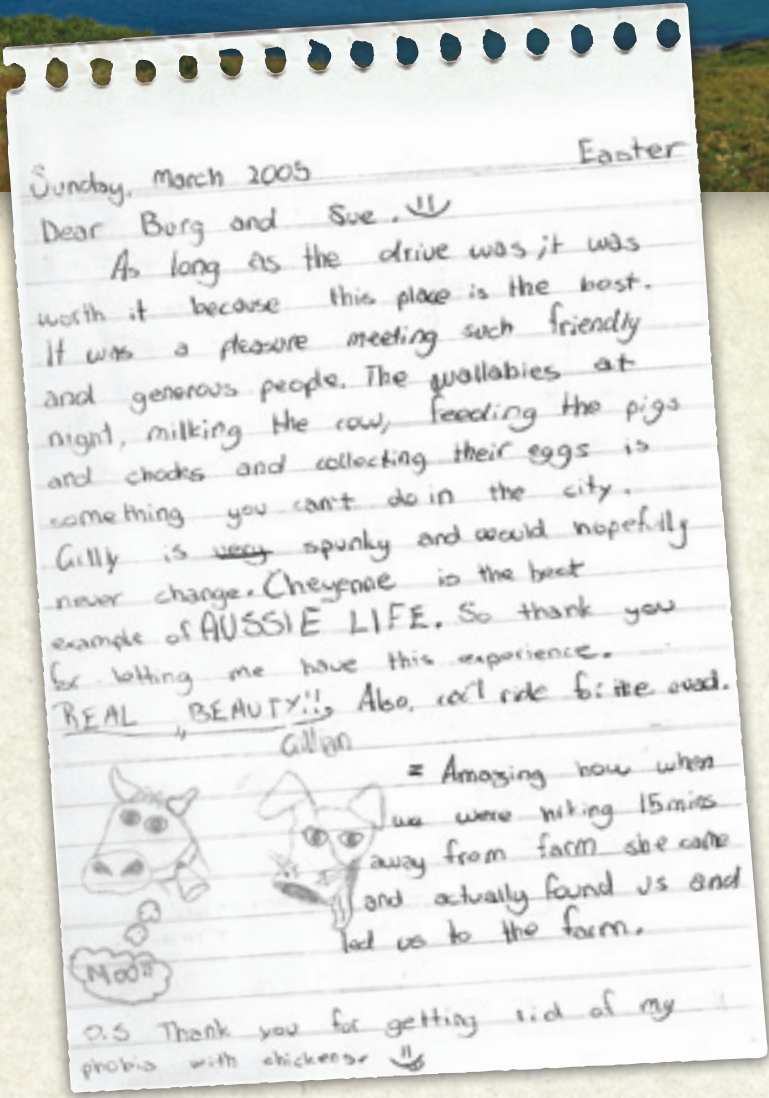 Sunday, March 2005 Easter
Dear Burg and Sue.
As long as the drive was, it was
worth it because this place is the best.
It was a pleasure meeting such friendly
and generous people. The wallabies at
night, milking the cow, feeding the pigs
and chooks and collecting their eggs is
something you can't do in the city.
Gilly is very spunky and would hopefully
never change. Cheyenne is the best
example of AUSSIE LIFE. So thank you
for letting me have this experience.
REAL BEAUTY!! Also, ride quad.
Gillian
= Amazing how when
we were hiking 15 mins
away from farm she came
and actually found us and
led us to the farm.
Moo!!
O.S Thank you for getting rid of my
phobia with chickens.